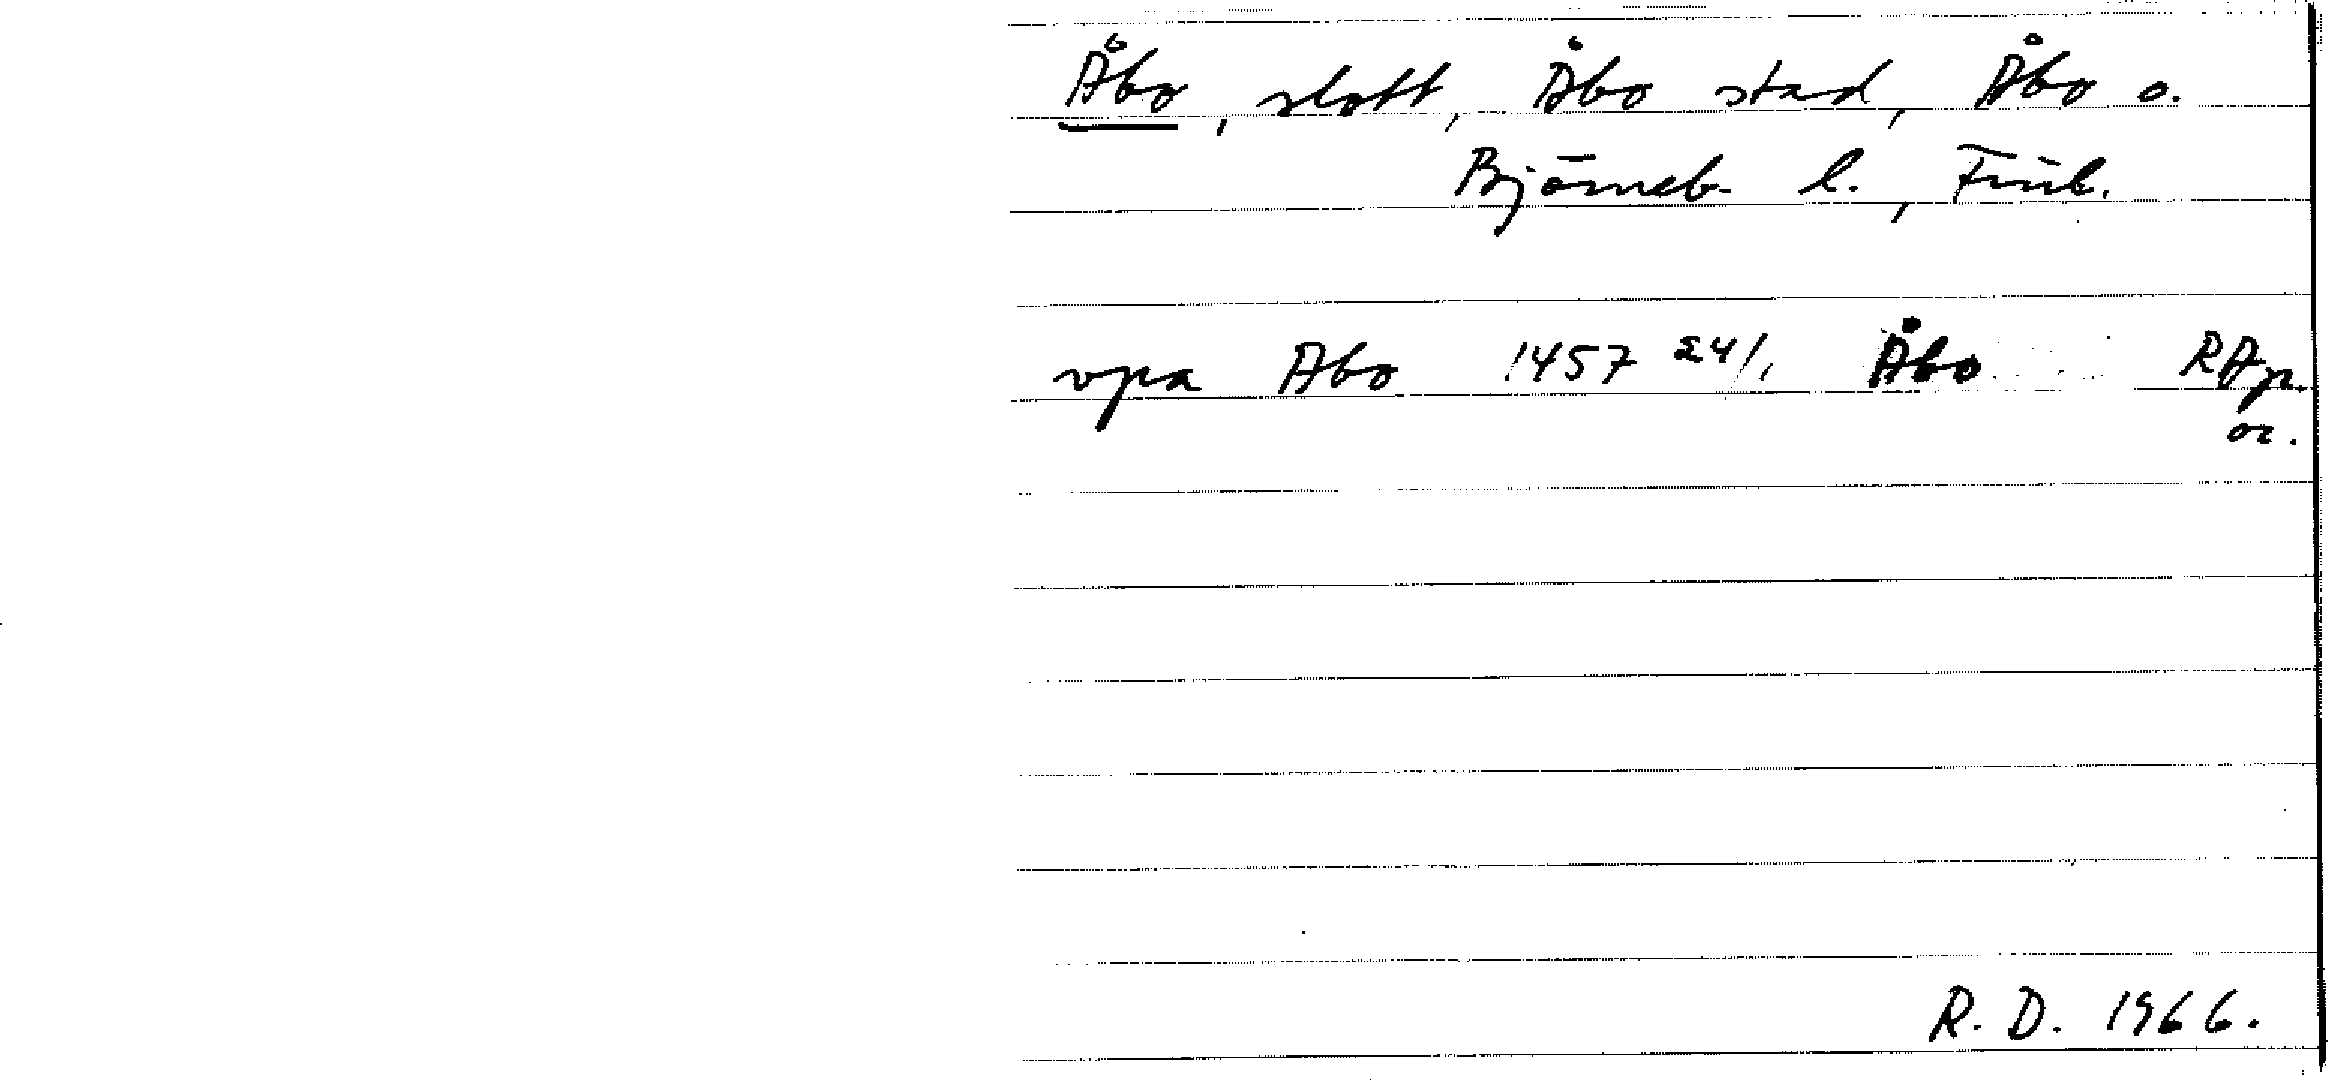 Åbo, slott, Åbo stad, Åbo o.
Björneb. l., Finl.
vpa Abo 1457 24/1 Åbo RAp.
or.
R. D. 1966.